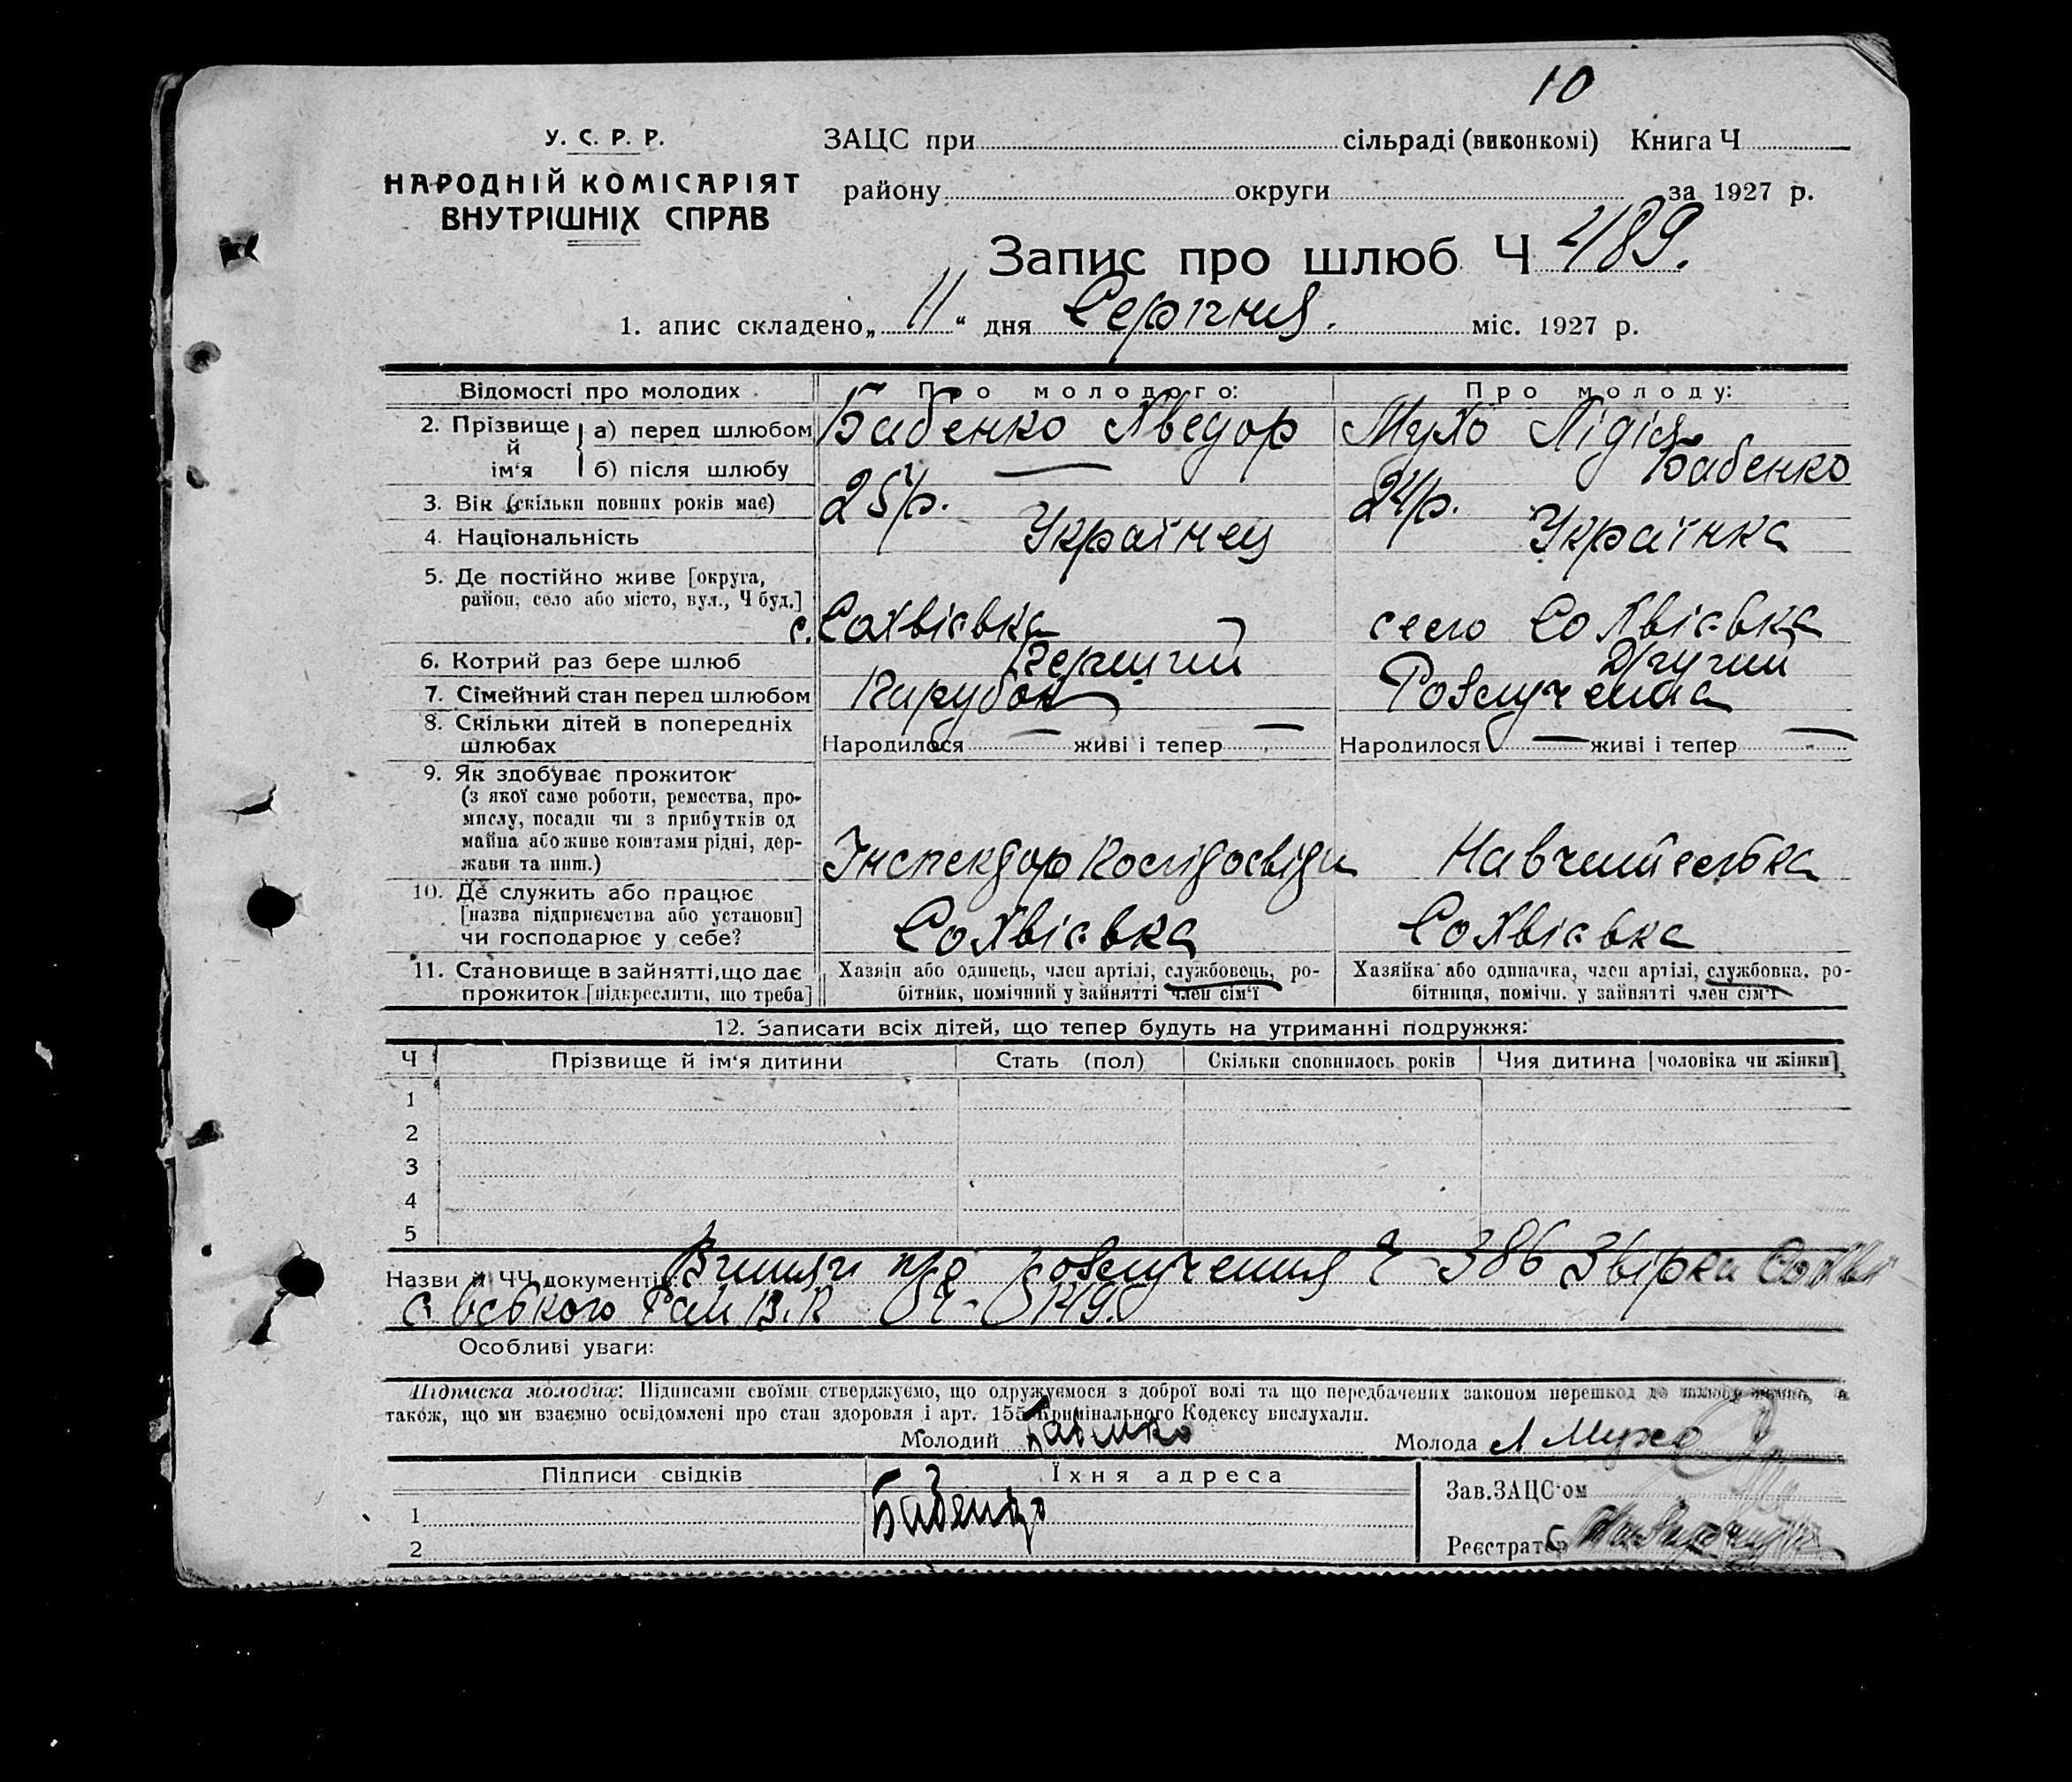 10
У. С. Р. Р.
НАРОДНІЙ КОМІСАРІЯТ
ВНУТРІШНІХ СПРАВ
ЗАЦС при сільраді (виконкомі) Книга Ч
району округи за 1927 р.
Запис про шлюб Ч 489.
1. апис складено „11“ дня Серпня. міс. 1927 р.
Відомості про молодих Про молодого: Про молоду:
2. Прізвище й ім'я а) перед шлюбом Бабенко Хведор Мухо Лідія
б) після шлюбу — Бабенко
3. Вік (скільки повних років має) 25 р. 24 р.
4. Національність Українец Українка
5. Де постійно живе [округа,
район, село або місто, вул., Ч буд.]
с. Сохвієвка село Сохвієвка
6. Котрий раз бере шлюб Перший Другий
7. Сімейний стан перед шлюбом Парубок Розлучена
8. Скільки дітей в попередніх
шлюбах Народилося — живі і тепер — Народилося — живі і тепер —
9. Як здобуває прожиток
(з якої саме роботи, ремества, про-
мислу, посади чи з прибутків од
майна або живе коштами рідні, дер-
жави та инш.) Інспектор Навчителька
10. Де служить або працює
[назва підприємства або установи]
чи господарює у себе? Сохвієвка Сохвієвка
11. Становище в зайнятті, що дає Хазяїн або одинець, член артілі, службовець, ро- Хазяйка або одиначка, член артілі, службовка, ро-
прожиток [підкреслити, що треба] бітник, помічний у зайнятті член сім'ї бітниця, помічн. у зайнятті член сім'ї
12. Записати всіх дітей, що тепер будуть на утриманні подружжя:
Ч Прізвище й ім'я дитини Стать (пол) Скільки сповнилось років Чия дитина [чоловіка чи жінки]
1
2
3
4
5
Назви й ЧЧ документів: про розлучення Ч 386
ського
Особливі уваги:
Підписка молодих: Підписами своїми стверджуємо, що одружуємося з доброї волі та що передбачених законом перешкод до шлюбу немає, а
також, що ми взаємно освідомлені про стан здоровля і арт. 155 Кримінального Кодексу вислухали.
Молодий Бабенко Молода Л Мухо
Підписи свідків Їхня адреса
Зав. ЗАЦС'ом
1 Бабенко
Реєстратор
2